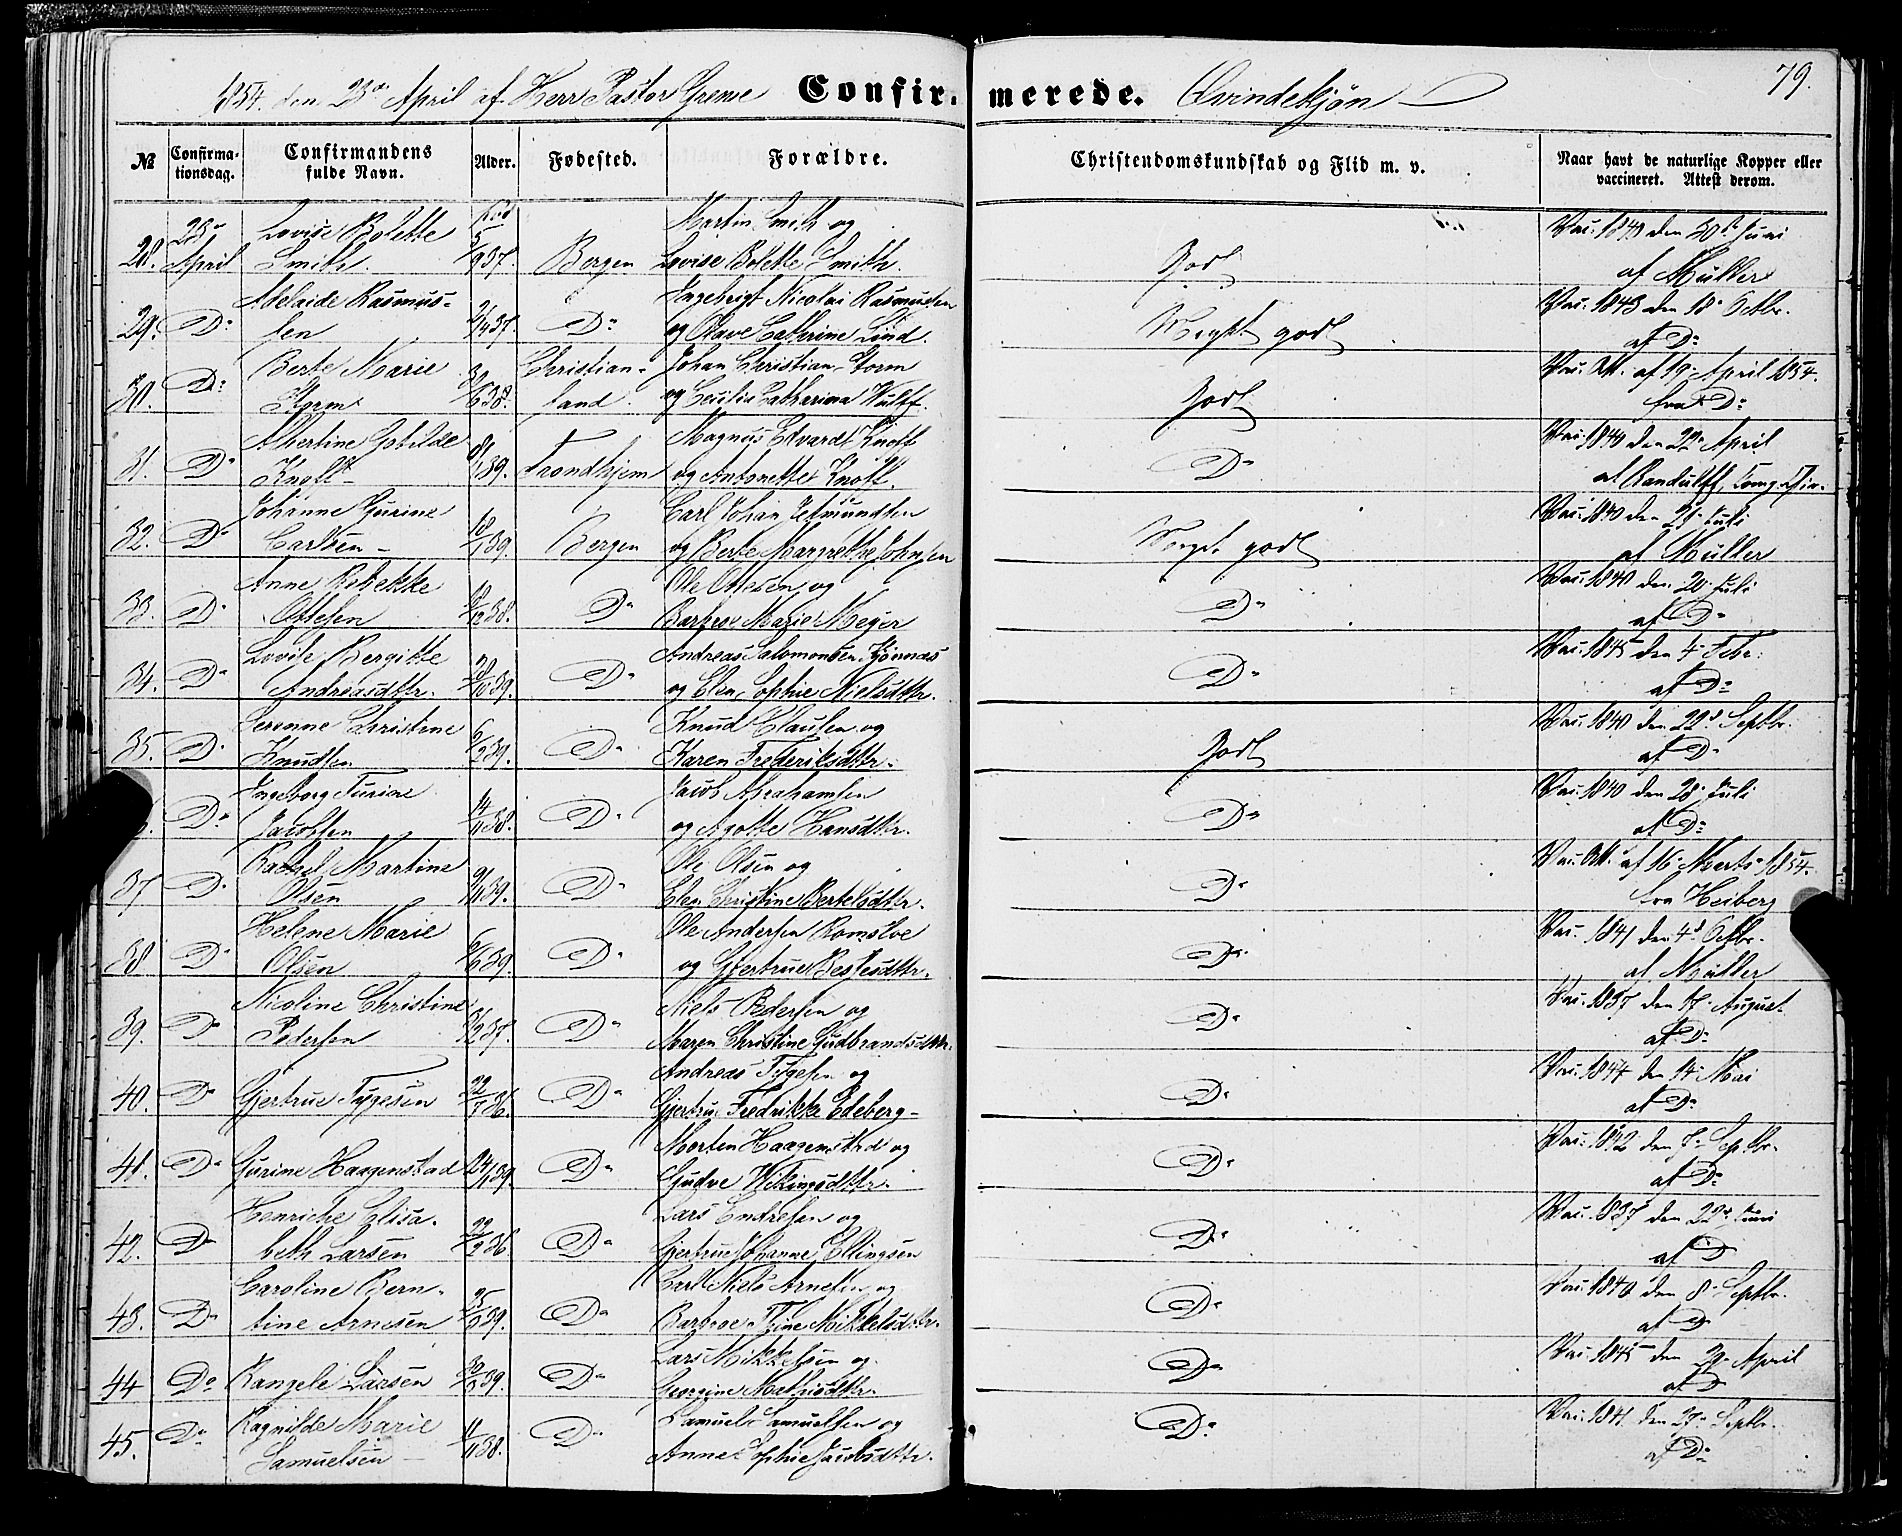 1854. den 23de April af Herr Pastor Greve Confirmerede. Qvindekjøn 79.
№ Confirmationsdag. Confirmandens fulde Navn. Alder. Fødested. Forældre. Christendomskundskab og Flid m. v. Naar havt de naturlige Kopper eller vaccineret. Attest derom.
28. 23de April Lovise Bolette Smith. 5/9 37. Bergen Martin Smith og Lovise Bolette Smith. Godt Vac. 1840 den 30te Juni af Müller
29. Do Adelaide Rasmussen 2/4 37. Do Ingebrigt Nicolai Rasmussen og Olave Cathrine Lind. Meget godt Vac. 1843 den 18 Octbr. af Do
30. Do Berte Marie Storm 38. Christiansand Johan Christian Storm og Cecilia Catharina Wulff. Godt Vac. Att. af 19 April 1854. fra Do
31. Do Albertine Knoff 39. Trondhjem Magnus Edvardt Knoff og Antonette Knoff. Do Vac. 1840 den 22 April af Randulff
32. Do Johanne Gurine Carlsen 39. Bergen Carl Johan Jetmundsen og Berte Margrethe Johnsen Meget godt Vac. 1840 den 21 Juli af Müller
33. Do Anne Rebekke Ottesen 38. Do Ole Ottesen og Barbroe Marie Meyer Do Vac. 1840 den 20 Juli af Do
34. Do Lovise Bergitte Andreasdttr. 28/10 39. Do Andreas Salomonsen Kønnæs og Elen Sophie Nielsdttr. Do Vac. 1845 den 4 Febr. af Do
35. Do Serenne Christine Knudsen 6/2 39. Do Knud Clausen og Karen Frederiksdttr. Godt Vac. 1840 den 22de Septbr. af Do
Do Ingeborg Turine Jacobsen 14/11 38. Do Jacob Abrahamsen og Agotte Hansdttr. Do Vac. 1840 den 28 Juli af Do
37 Do Rachel Martine Olsen 9/11 39. Do Ole Olsen og Elen Christine Bertelsdttr. Do Vac. Att. af 16 Marts 1854. fra Heiberg
38 Do Helene Marie Olsen 6/6 39. Do Ole Andersen Romsloe og Gjertrue Do Vac. 1841 den 4de Octbr. af Müller
39. Do Nicoline Christine Pedersen 37. Do Niels Pedersen og Maren Christine Gudbrandsdttr. Do Vac. 1837 den 17 August af Do
40. Do Gjertrue Tygesen 22/7 36. Do Andreas Tygesen og Gjertrue Fredrikke Edeberg Do Vac. 1844 den 14 Mai af Do
41. Do Gurine Haagenstad 24/1 39. Do Morten Haagenstad og Gudve Wikingsdttr. Do Vac. 1842 den 7 Septbr. af Do
42. Do Henriche Elisabeth Larsen 22/2 36 Do Lars Endresen og Gjertrue Johanne Ellingsen Do Vac. 1837 den 22de Juni af Do
43. Do Caroline Berntine Arnesen 25/3 39. Do Carl Niels Arnesen og Barbroe Thrine Mikkelsdttr. Do Vac. 1840 den 8 Septbr. af Do
44 Do Rangele Larsen 30/3 39. Do Lars Mikkelsen og Georgine Mathisdttr. Do Vac. 1845 den 29 April af Do
45. Do Ragnilde Marie Samuelsen 11/11 38. Do Samuel Samuelsen og Anne Sophie Jacobsdttr. Do Vac. 1841 den 27 Septbr. af Do